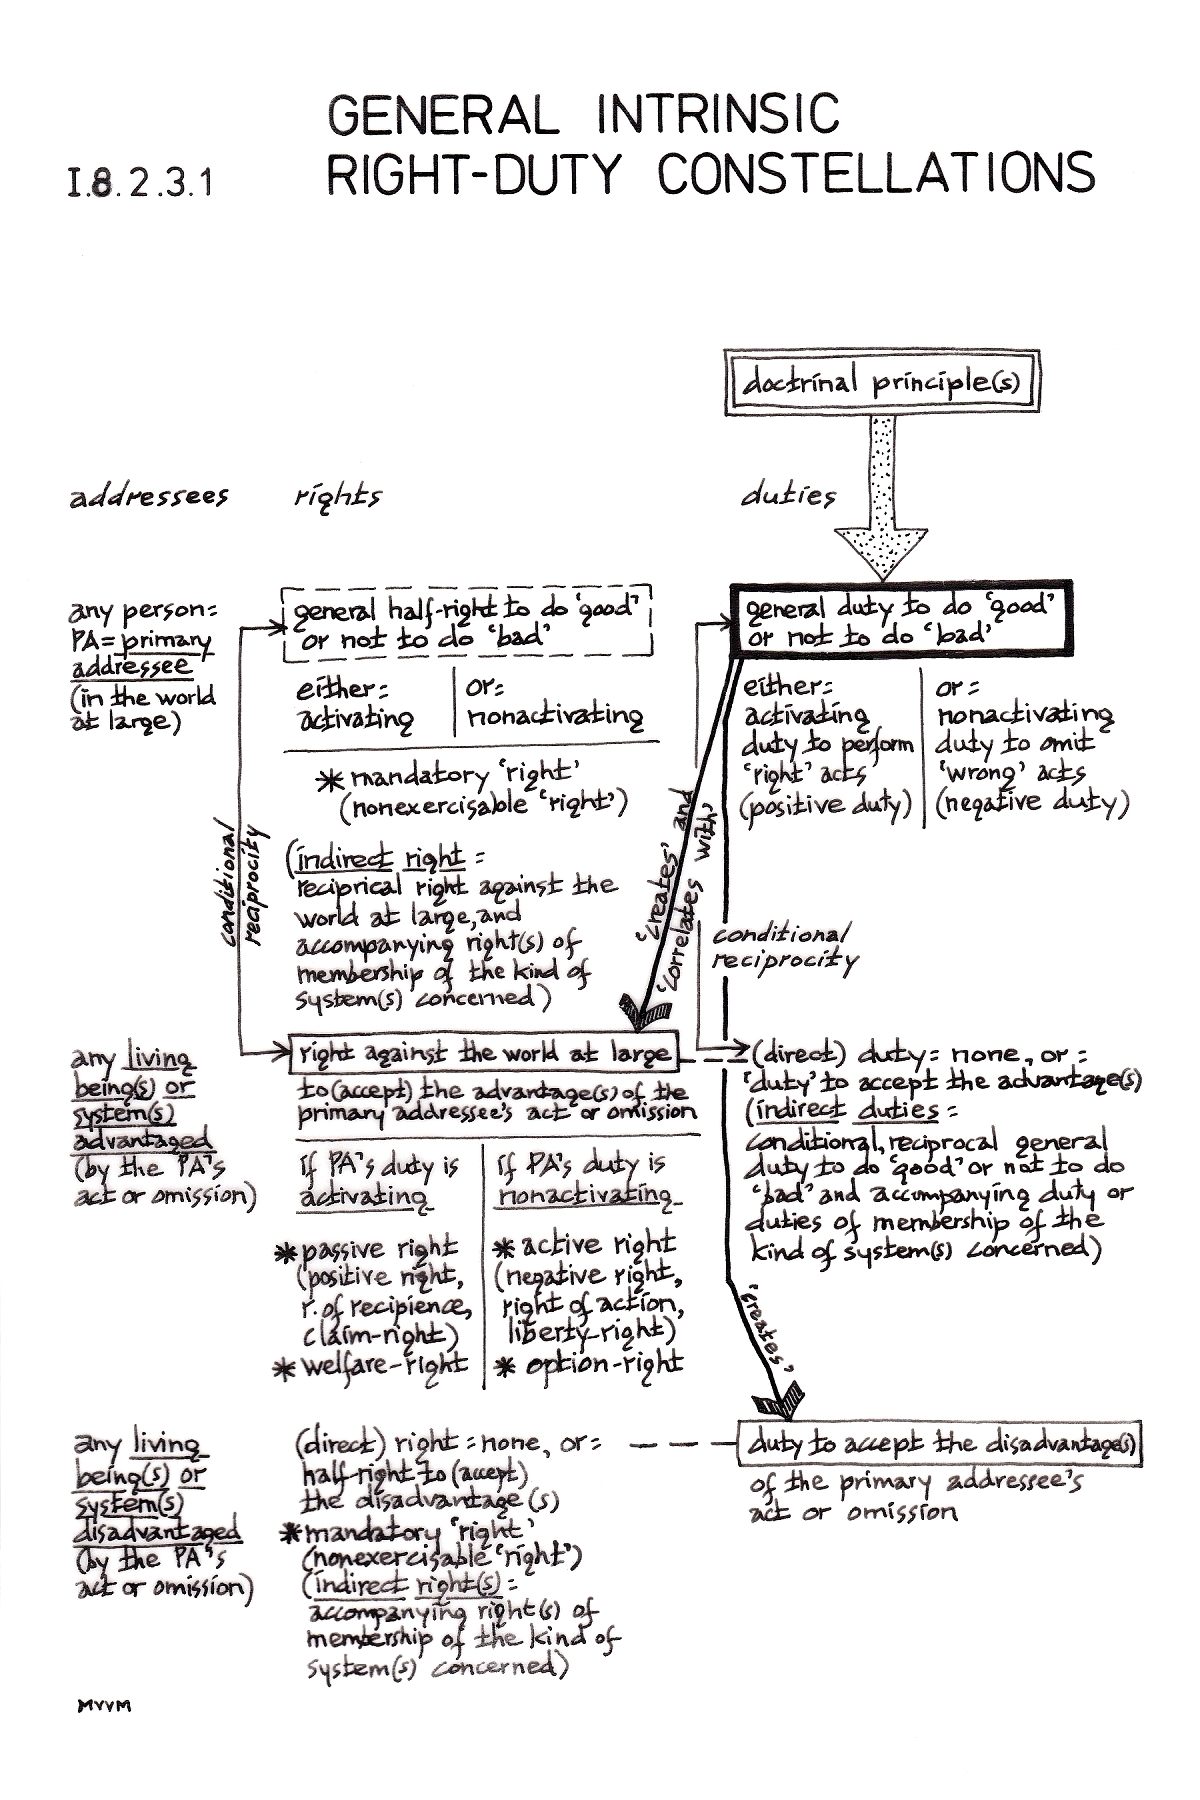 GENERAL INTRINSIC
I.8.2.3.1 RIGHT-DUTY CONSTELLATIONS
doctrinal principle(s)
addressees rights duties
any person:
PA = primary
addressee
(in the world
at large)
general half-right to do 'good'
or not to do 'bad'
either:
activating
or:
nonactivating
* mandatory 'right'
(nonexercisable 'right')
(indirect right:
reciprical right against the
world at large, and
accompanying right(s) of
membership of the kind of
system(s) concerned)
general duty to do 'good'
or not to do 'bad'
either:
activating
duty to perform
'right' acts
(positive duty)
or:
nonactivating
duty to omit
'wrong' acts
(negative duty)
conditional
reciprocity
'creates' and
'correlates with'
conditional
reciprocity
any living
being(s) or
system(s)
advantaged
(by the PA's
act or omission)
right against the world at large
to (accept) the advantage(s) of the
primary addressee's act or omission
if PA's duty is
activating
* passive right
(positive right,
r. of recipience,
claim-right)
* welfare-right
if PA's duty is
nonactivating
* active right
(negative right,
right of action,
liberty-right)
* option-right
(direct) duty: none, or:
'duty' to accept the advantage(s)
(indirect duties:
conditional, reciprocal general
duty to do 'good' or not to do
'bad' and accompanying duty or
duties of membership of the
kind of system(s) concerned)
'creates'
any living
being(s) or
system(s)
disadvantaged
(by the PA's
act or omission)
(direct) right: none, or:
half-right to (accept)
the disadvantage(s)
* mandatory 'right'
(nonexercisable 'right')
(indirect right(s):
accompanying right(s) of
membership of the kind of
system(s) concerned)
duty to accept the disadvantage(s)
of the primary addressee's
act or omission
MVVM